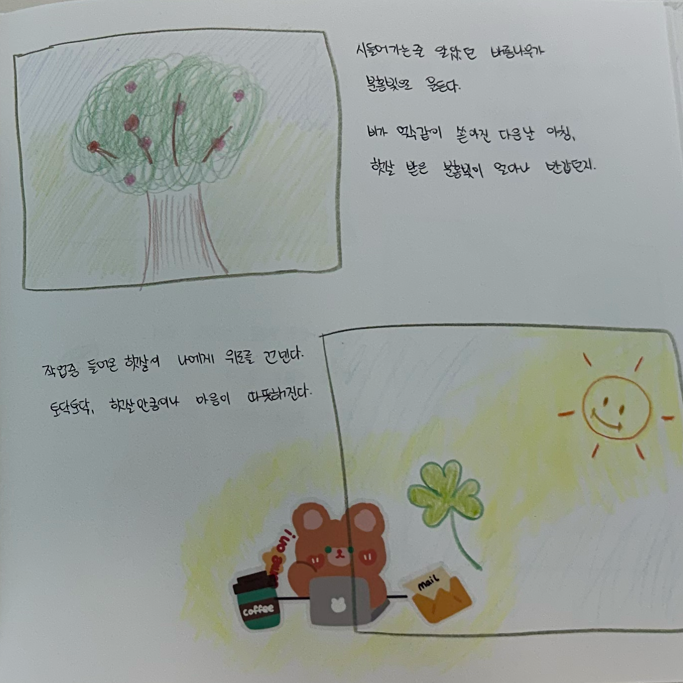 시들어가는줄 알았던 배롱나무가
분홍빛으로 물든다.
비가 억수같이 쏟아진 다음날 아침,
햇살 받은 분홍빛이 얼마나 반갑던지.
작업중 들어온 햇살이 나에게 위로를 건낸다.
토닥토닥, 햇살만큼이나 마음이 따뜻해진다.
on!
coffee
mail